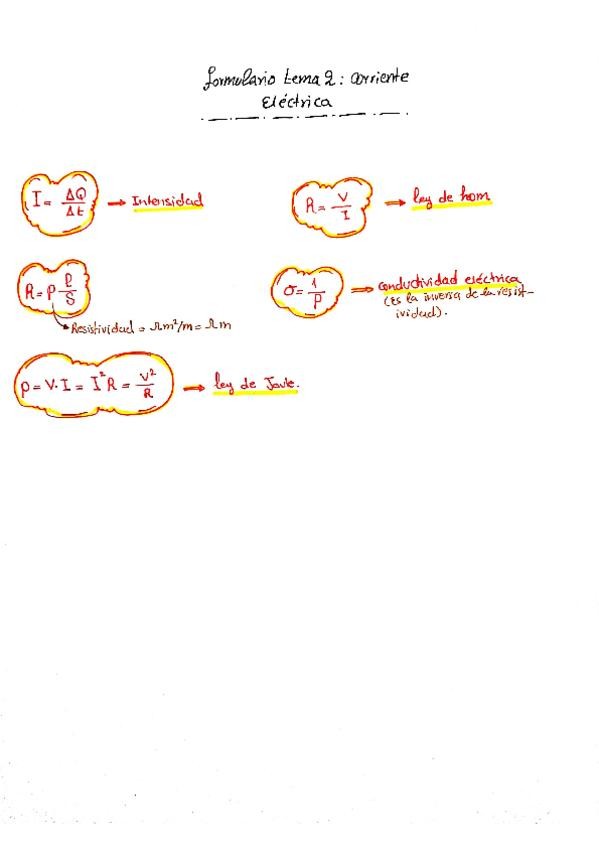 formulario tema 2: corriente
Eléctrica
I = ΔQ/Δt → Intensidad
R = V/I → ley de hom
R = ρ l/S
Resistividad = Ωm²/m = Ωm
σ = 1/ρ ⇒ conductividad eléctrica
(Es la inversa de la resist-
ividad).
p = V·I = I²R = V²/R → ley de Joule.